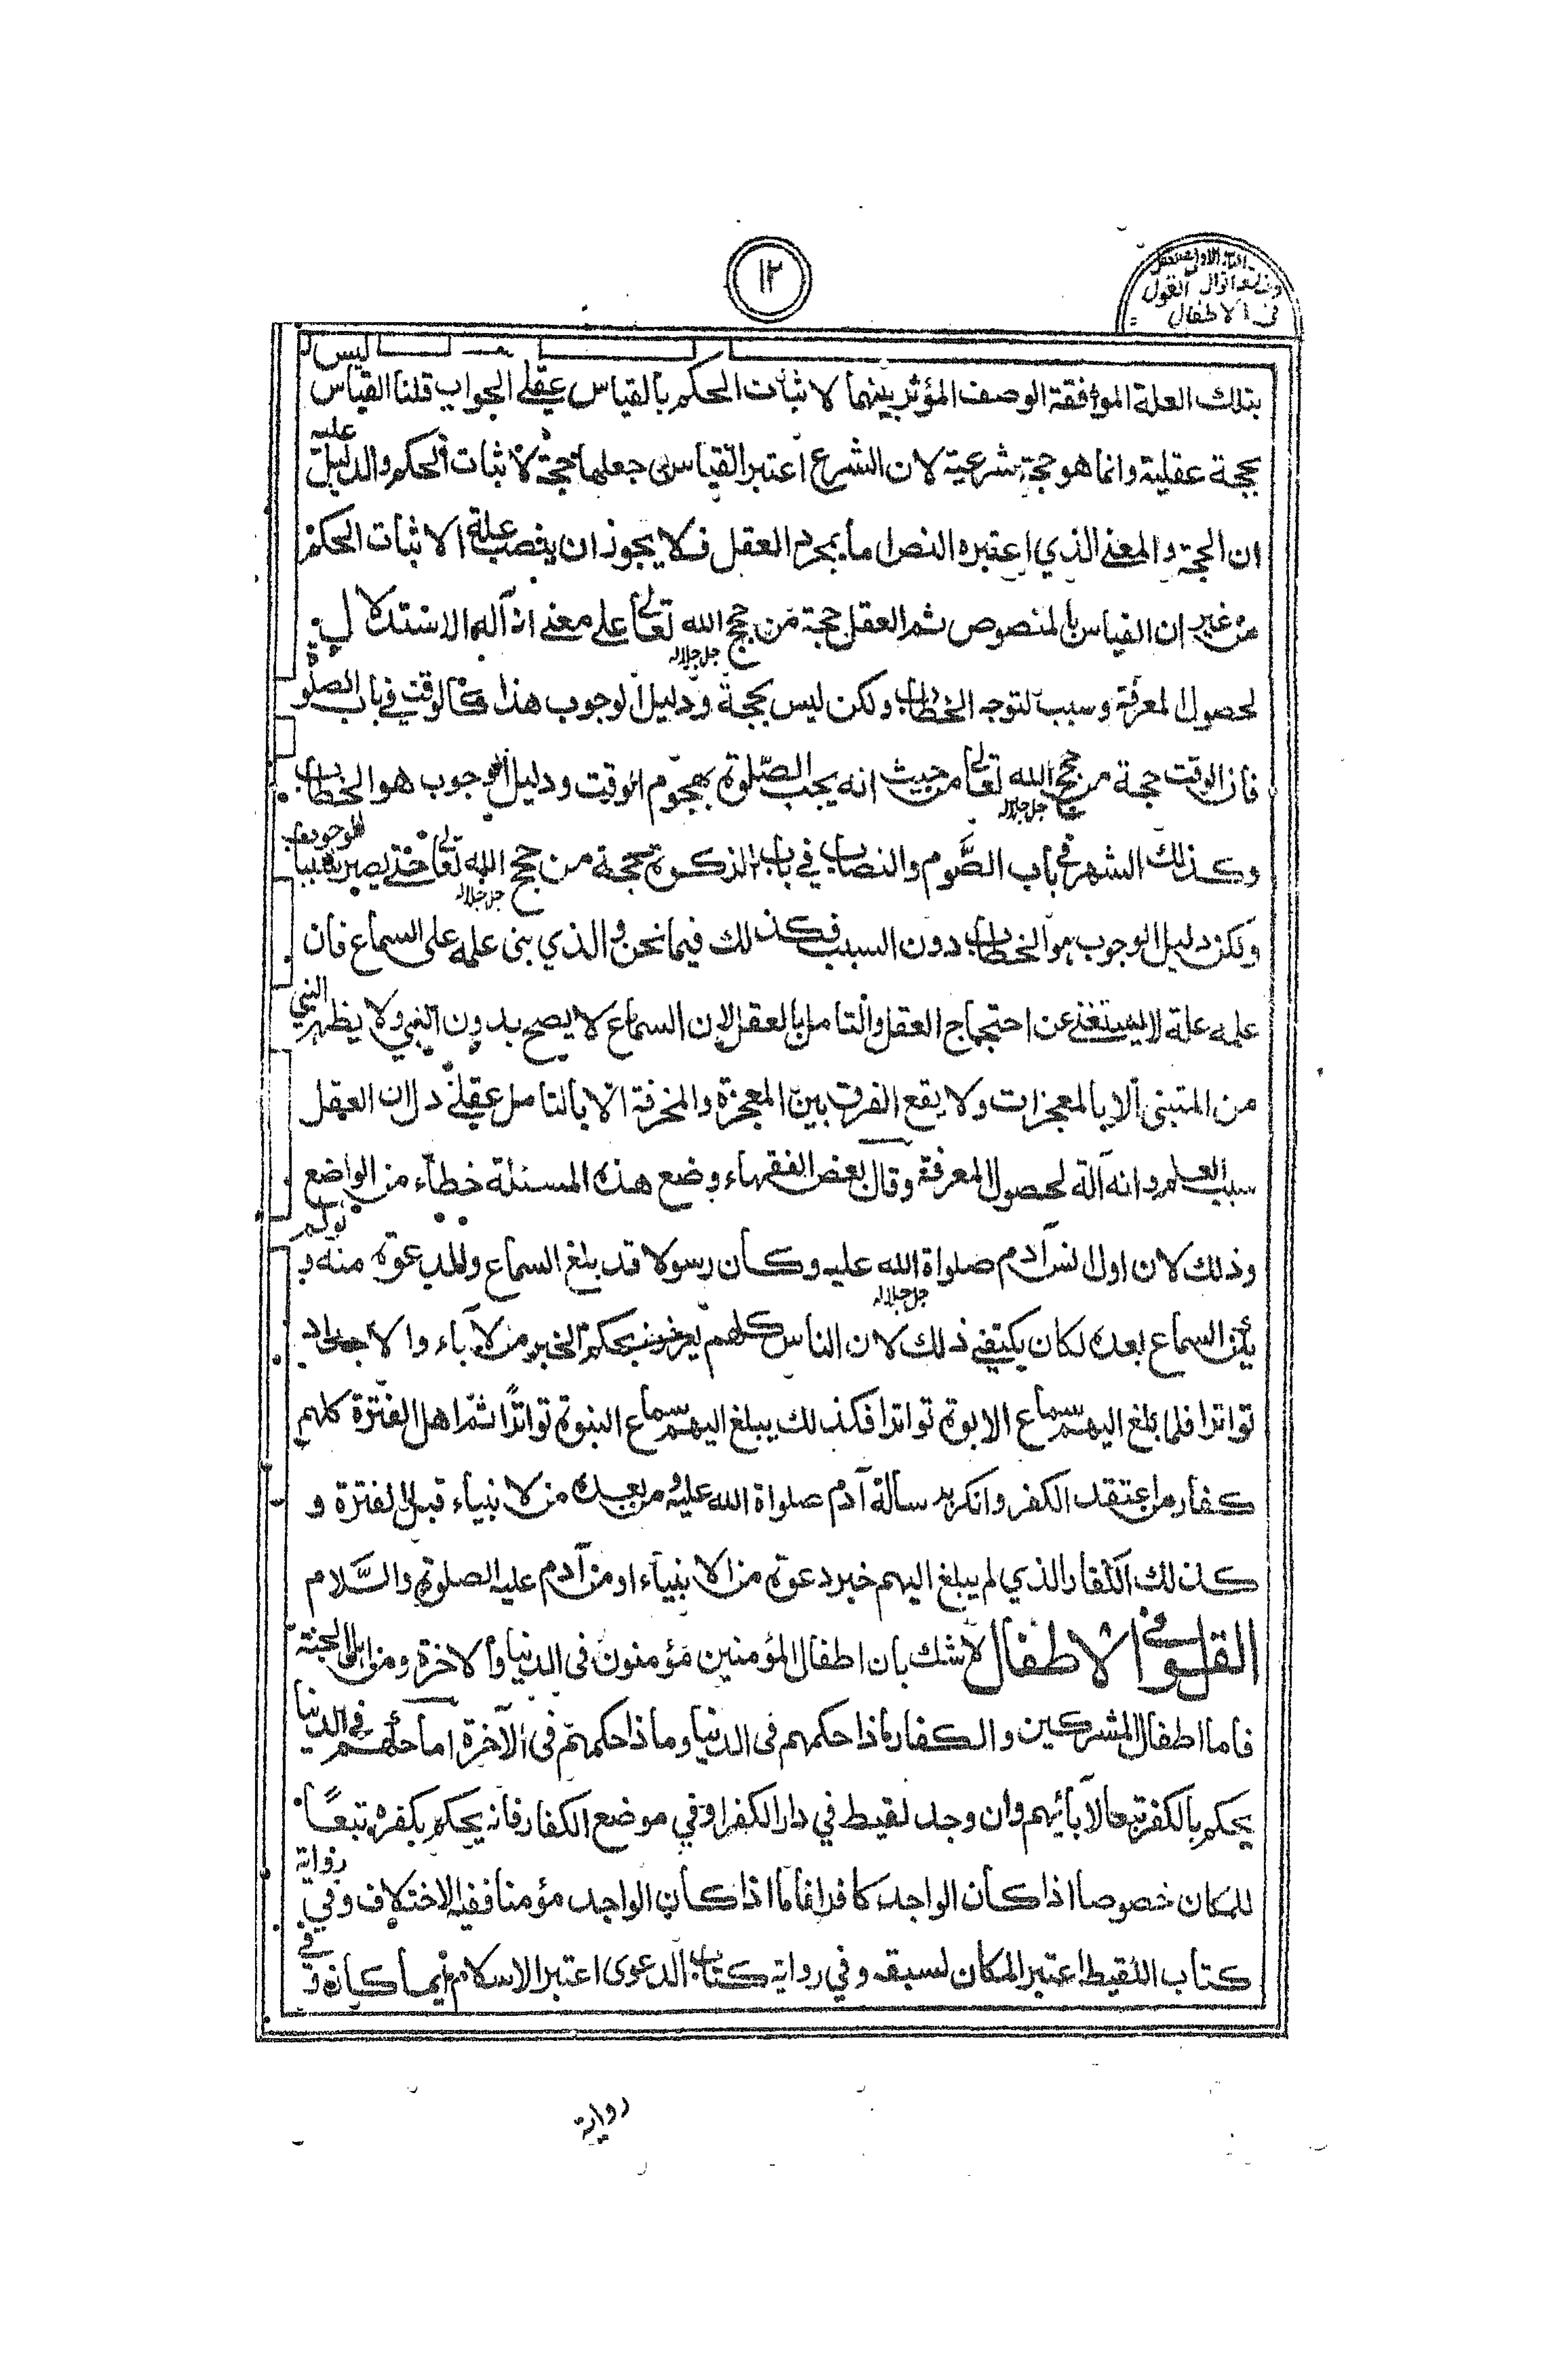 ١٢
القول
فى الاطفال
بتلك العلة الموافقة الوصف المؤثر بينهما لاثبات الحكم بالقياس عقلى الجواب قلنا القياس ليس
بحجة عقلية وانما هو حجة شرعية لان الشرع اعتبر القياس جعلها حجة لاثبات الحكم والدليل عليه
ان الحجة والمعنى الذي اعتبره النص اما بمجرد العقل فلا يجوز ان ينصب علة لاثبات الحكم
من غير ان القياس بالمنصوص ثم العقل حجة من حجج الله تعالى جل جلاله على معنى انه آلة الاستدلال
لحصول المعرفة وسبب لتوجه الخطاب ولكن ليس بحجة ودليل الوجوب هذا كالوقت في باب الصلوة
فان الوقت حجة من حجج الله تعالى جل جلاله من حيث انه يجب الصلوة بهجوم الوقت ودليل الوجوب هو الخطاب
وكذلك الشهر في باب الصوم والنصاب في باب الزكوة حجة من حجج الله تعالى جل جلاله حتى يصير سببا للوجوب
ولكن دليل الوجوب هو الخطاب دون السبب فكذلك فيما نحن فيه والذي بنى علمه على السماع فان
علمه علة لا يستغنى عن احتجاج العقل والتامل بالعقل لان السماع لا يصح بدون النبي ولا يظهر النبي
من المتنبى الا بالمعجزات ولا يقع الفرق بين المعجزة والمخرفة الا بالتامل عقلى دل ان العقل
سبب العلم وانه آلة لحصول المعرفة وقال بعض الفقهاء وضع هذه المسئلة خطاء من الواضع
وذلك لان اول نس آدم صلواة الله جل جلاله عليه وكان رسولا قد بلغ السماع والمدعوة منه و لو لم
يكن السماع بعده لكان يكتفى ذلك لان الناس كلهم يعرفون بحكم الخبر من الآباء والاجداد
تواترا فلما بلغ اليهم سماع الابوة تواترا فكذلك يبلغ اليهم سماع النبوة تواترًا ثم اهل الفترة كلهم
كفار من اعتقد الكفر وانكر برسالة آدم صلواة الله عليه ومن بعده من لانبياء قبل الفترة و
كذلك الكفار الذي لم يبلغ اليهم خبر دعوة من الانبياء او من آدم عليه الصلوة والسلام
القول في الاطفال لا شك بان اطفال المؤمنين مؤمنون فى الدنيا والاخرة ومن اهل الجنة
فاما اطفال المشركين والكفار ماذا حكمهم فى الدنيا وماذا حكمهم فى الآخرة اما حالهم في الدنيا
يحكم بالكفر تبعا لآبائهم وان وجد لقيط في دار الكفر او في موضع الكفار فانه يحكم بكفره تبعًا
للمكان خصوصا اذا كان الواجد كافرا فاما اذا كان الواجد مؤمنا ففيه الاختلاف وفي رواية
كتاب اللقيط اعتبر المكان لسبقه وفي رواية كتاب الدعوى اعتبر الاسلام ايهما كان و في
رواية